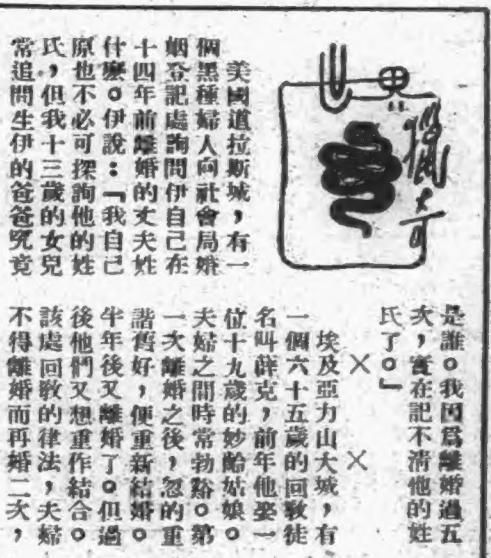 美國道拉斯城，有一
個黑種婦人向社會局婚
姻登記處詢問伊自己在
十四年前離婚的丈夫姓
什麽。伊說：「我自己
原也不必可探詢他的姓
氏，但我十三歲的女兒
常追問生伊的爸爸究竟
是誰。我因爲離婚過五
次，實在記不清他的姓
氏了。」
× ×
埃及亞力山大城，有
一個六十五歲的回敎徒
名叫薛克，前年他娶一
位十九歲的妙齡姑娘。
夫婦之間時常勃谿。第
一次離婚之後，忽的重
諧舊好，便重新結婚。
半年後又離婚了。但過
後他們又想重作結合。
該處回敎的律法，夫婦
不得離婚而再婚二次，